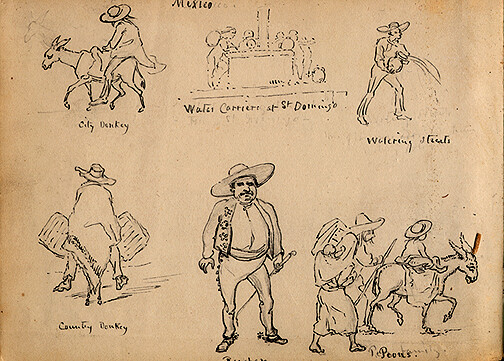 Mexico
City Donkey
Water Carriers at St Domingo
Watering Streets
Country Donkey
Peons.